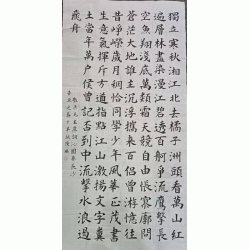 獨立寒秋湘江北去橘子洲頭看萬山紅
遍層林盡染漫江碧透百舸爭流鷹擊長
空魚翔淺底萬類霜天競自由悵寥廓問
蒼茫大地誰主沉浮攜來百侶曾游憶往
昔崢嶸歲月稠恰同學少年風華正茂書
生意氣揮斥方遒指點江山激揚文字糞
土當年萬戶侯曾記否到中流擊水浪遏
飛舟
毛主席詞沁園春長沙